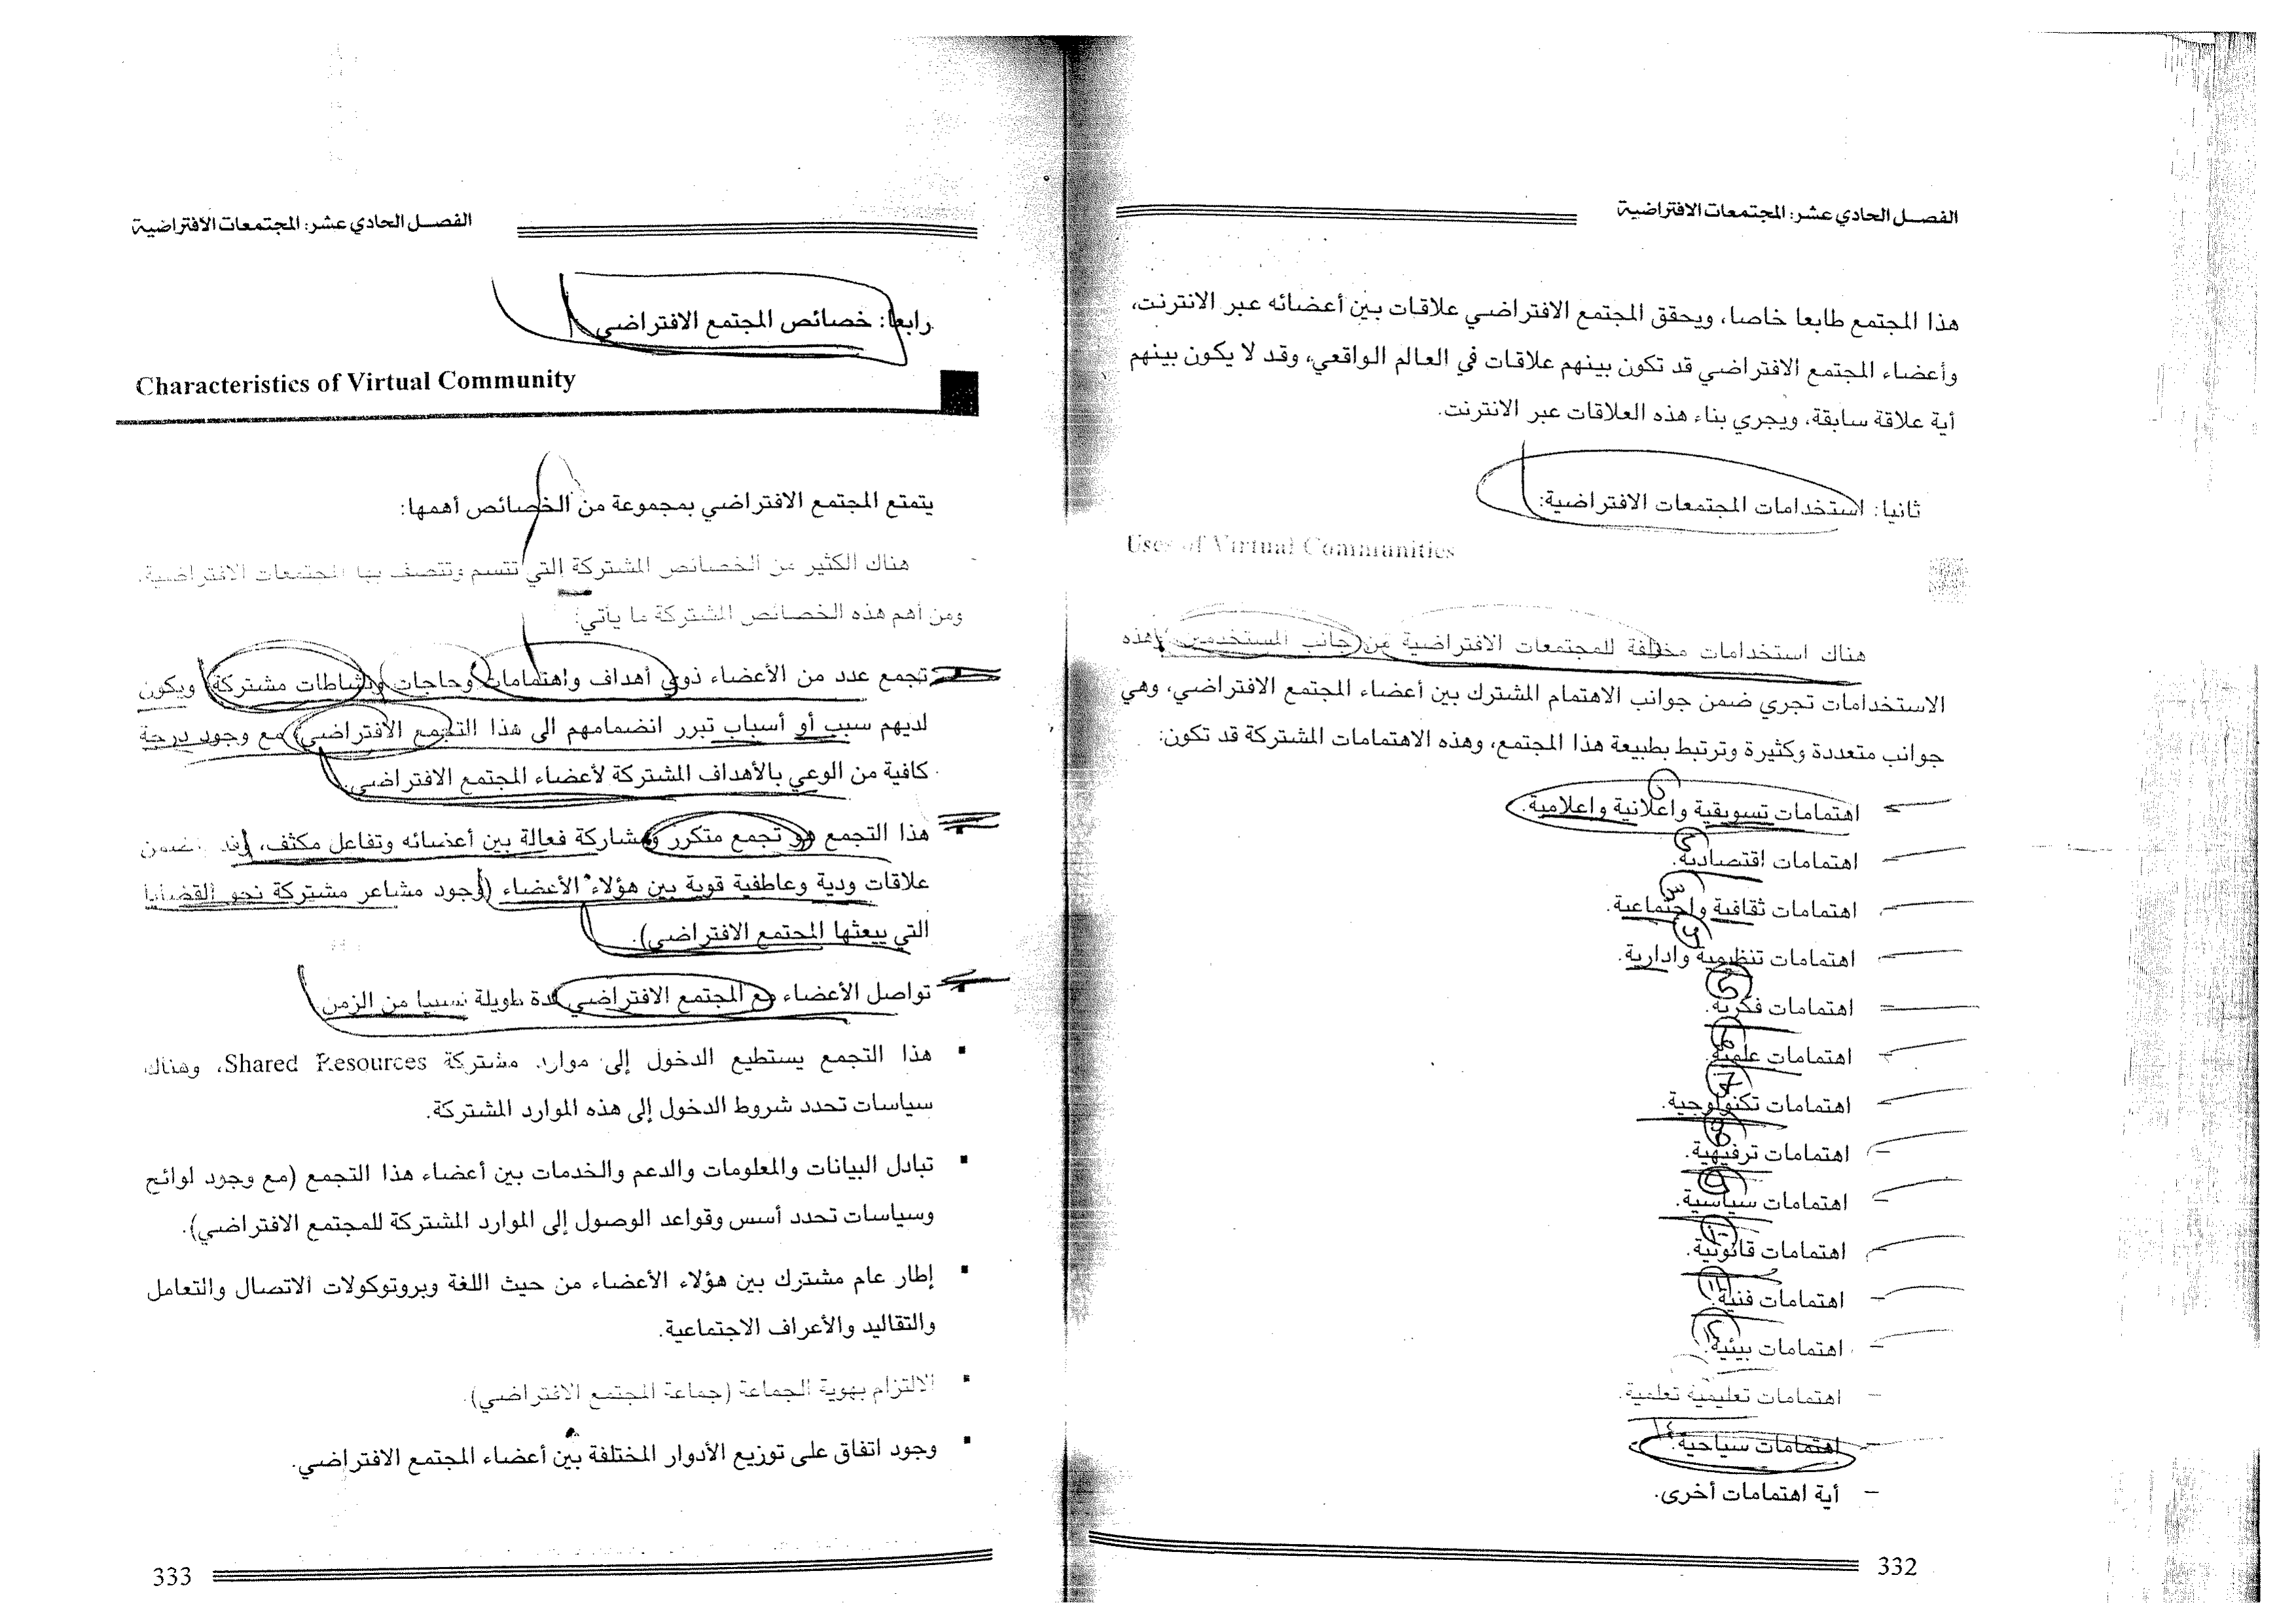 الفصل الحادي عشر: المجتمعات الافتراضية
هذا المجتمع طابعا خاصا، ويحقق المجتمع الافتراضي علاقات بين أعضائه عبر الانترنت،
وأعضاء المجتمع الافتراضي قد تكون بينهم علاقات في العالم الواقعي، وقد لا يكون بينهم
أية علاقة سابقة، ويجري بناء هذه العلاقات عبر الانترنت.
ثانيا: استخدامات المجتمعات الافتراضية:
Uses of Virtual Communities
هناك استخدامات مختلفة للمجتمعات الافتراضية من جانب المستخدمين، وهذه
الاستخدامات تجري ضمن جوانب الاهتمام المشترك بين أعضاء المجتمع الافتراضي، وهي
جوانب متعددة وكثيرة وترتبط بطبيعة هذا المجتمع، وهذه الاهتمامات المشتركة قد تكون:
- اهتمامات تسويقية وإعلانية وإعلامية.
- اهتمامات اقتصادية.
- اهتمامات ثقافية واجتماعية.
- اهتمامات تنظيمية وادارية.
- اهتمامات فكرية.
- اهتمامات علمية.
- اهتمامات تكنولوجية.
- اهتمامات ترفيهية.
- اهتمامات سياسية.
- اهتمامات قانونية.
- اهتمامات فنية.
- اهتمامات بيئية.
- اهتمامات تعليمية تعلمية.
- اهتمامات سياحية.
- أية اهتمامات أخرى.
332
الفصل الحادي عشر: المجتمعات الافتراضية
رابعا: خصائص المجتمع الافتراضي
Characteristics of Virtual Community
يتمتع المجتمع الافتراضي بمجموعة من الخصائص أهمها:
هناك الكثير من الخصائص المشتركة التي تتسم وتتصف بها المجتمعات الافتراضية،
ومن أهم هذه الخصائص المشتركة ما يأتي:
تجمع عدد من الأعضاء ذوي أهداف واهتمامات وحاجات ونشاطات مشتركة، ويكون
لديهم سبب أو أسباب تبرر انضمامهم الى هذا التجمع الافتراضي، مع وجود درجة
كافية من الوعي بالأهداف المشتركة لأعضاء المجتمع الافتراضي.
هذا التجمع هو تجمع متكرر ومشاركة فعالة بين أعضائه وتفاعل مكثف، وقد يتضمن
علاقات ودية وعاطفية قوية بين هؤلاء الأعضاء (وجود مشاعر مشتركة نحو القضايا
التي يبعثها المجتمع الافتراضي).
تواصل الأعضاء مع المجتمع الافتراضي لمدة طويلة نسبيا من الزمن
▪ هذا التجمع يستطيع الدخول إلى موارد مشتركة Shared Resources، وهناك
سياسات تحدد شروط الدخول إلى هذه الموارد المشتركة.
▪ تبادل البيانات والمعلومات والدعم والخدمات بين أعضاء هذا التجمع (مع وجود لوائح
وسياسات تحدد أسس وقواعد الوصول إلى الموارد المشتركة للمجتمع الافتراضي).
▪ إطار عام مشترك بين هؤلاء الأعضاء من حيث اللغة وبروتوكولات الاتصال والتعامل
والتقاليد والأعراف الاجتماعية.
▪ الالتزام بهوية الجماعة (جماعة المجتمع الافتراضي).
▪ وجود اتفاق على توزيع الأدوار المختلفة بين أعضاء المجتمع الافتراضي.
333